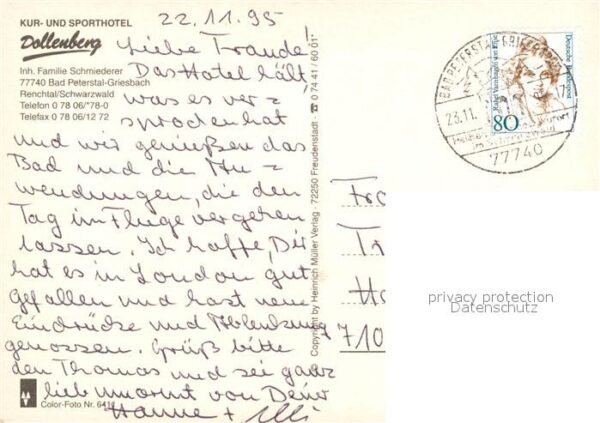 KUR- UND SPORTHOTEL
Dollenberg
Inh. Familie Schmiederer
77740 Bad Peterstal-Griesbach
Renchtal/Schwarzwald
Telefon 0 78 06/*78-0
Telefax 0 78 06/12 72
22.11.95
Liebe Traude!
Das Hotel hält
was es ver=
sprochen hat
und wir genießen das
Bad und die An=
wendungen, die den
Tag im Fluge vergehen
lassen. Ich hoffe, Dir
hat es in London gut
gefallen und hast neue
Eindrücke und Ablenkung
genossen. Grüß bitte
den Thomas und sei ganz
lieb umarmt von Deiner
Hanne + Uli
Color-Foto Nr. 641
Copyright by Heinrich Müller Verlag · 72250 Freudenstadt · ☎ 0 74 41/60 01*
Fr
Tr
Ha
710
BAD PETERSTAL-GRIESBACH
23.11.
77740
80
Deutsche Bundespost
Rahel Varnhagen von Ense
privacy protection
Datenschutz